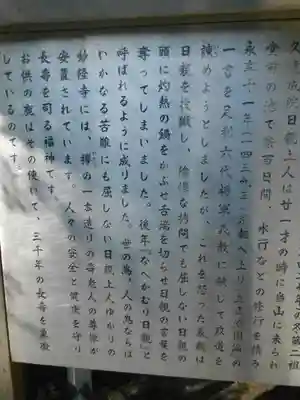 久遠成院日親上人は廿一才の時に当山に来られ
堂前の池で寒百日間、水行などの修行を積み
一書を足利六代将軍義教に献じて政道を
諌めようとしましたが、これを怒った義教は
日親を投獄し、陰惨な拷問でも屈しない日親の
頭に灼熱の鍋をかぶせ舌端を切らせ日親の言葉を
奪ってしまいました。後年「なべかむり日親」と
呼ばれるように成りました。世の為、人の為ならば
いかなる苦難にも屈しない日親上人ゆかりの
妙隆寺には、欅の一本造りの寿老人の尊像が
安置されています。人々の安全と健康を守り
長寿を司る福神です。
お供の鹿はその使いで、三千年の長寿を象徴
しているのです。